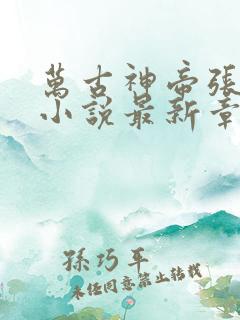 萬古神帝張
小說最新章
孫巧平
未經同意禁止轉載